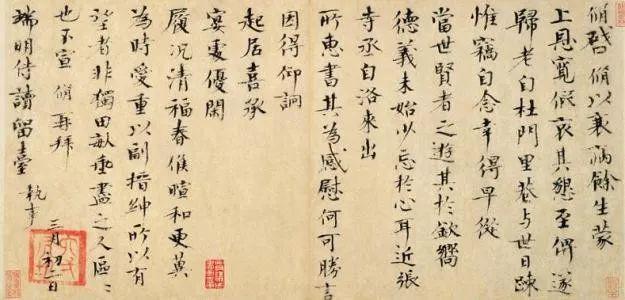 脩啓脩以衰病餘生蒙
上恩寬假哀其懇至俾遂
歸老自杜門里巷与世日踈
惟竊自念幸得早從
當世賢者之遊其於欽嚮
德義未始少忘於心耳近張
寺丞自洛來出
所惠書其為感慰何可勝言
因得仰詢
起居喜承
宴處優閑
履況清福春候暄和更冀
為時愛重以副搢紳所以有
望者非獨田畝垂盡之人區々
也不宣 脩再拜
端明侍讀留臺 執事
三月初二日